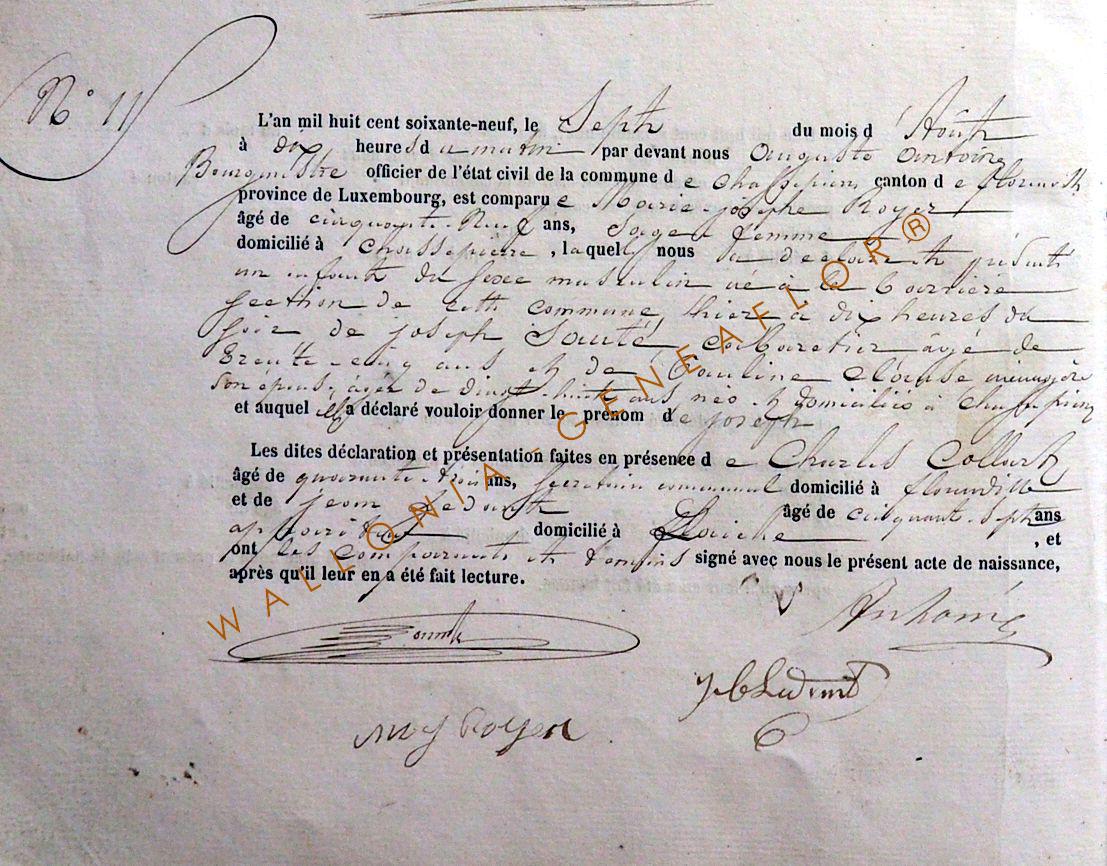 N° 11
L'an mil huit cent soixante-neuf, le Sept du mois d'Août
à dix heures du matin par devant nous Auguste Antoine
Bourgmestre officier de l'état civil de la commune de Chassepierre canton de Florenville
province de Luxembourg, est comparue Marie-Josephe Royer
âgé de cinquante-Neuf ans, Sage femme
domicilié à Chassepierre, laquelle nous a déclaré et présenté
un enfant du sexe masculin né à la
section de cette commune, hier à dix heures du
soir de joseph Sauté, cabaretier agé de
Trente-cinq ans et de Pauline ménagère
son épouse, âgée de vingt-huit ans nés et domiciliés à Chassepierre
et auquel il a déclaré vouloir donner le prénom de joseph
Les dites déclaration et présentation faites en présence de Charles Collart
âgé de quarante trois ans, Secrétaire communal domicilié à Florenville
et de jean âgé de cinquante-sept ans
domicilié à , et
ont les comparants et témoins signé avec nous le présent acte de naissance,
après qu'il leur en a été fait lecture.
Antoine
M J Royer
WALLONIA-GENEAFLOR®